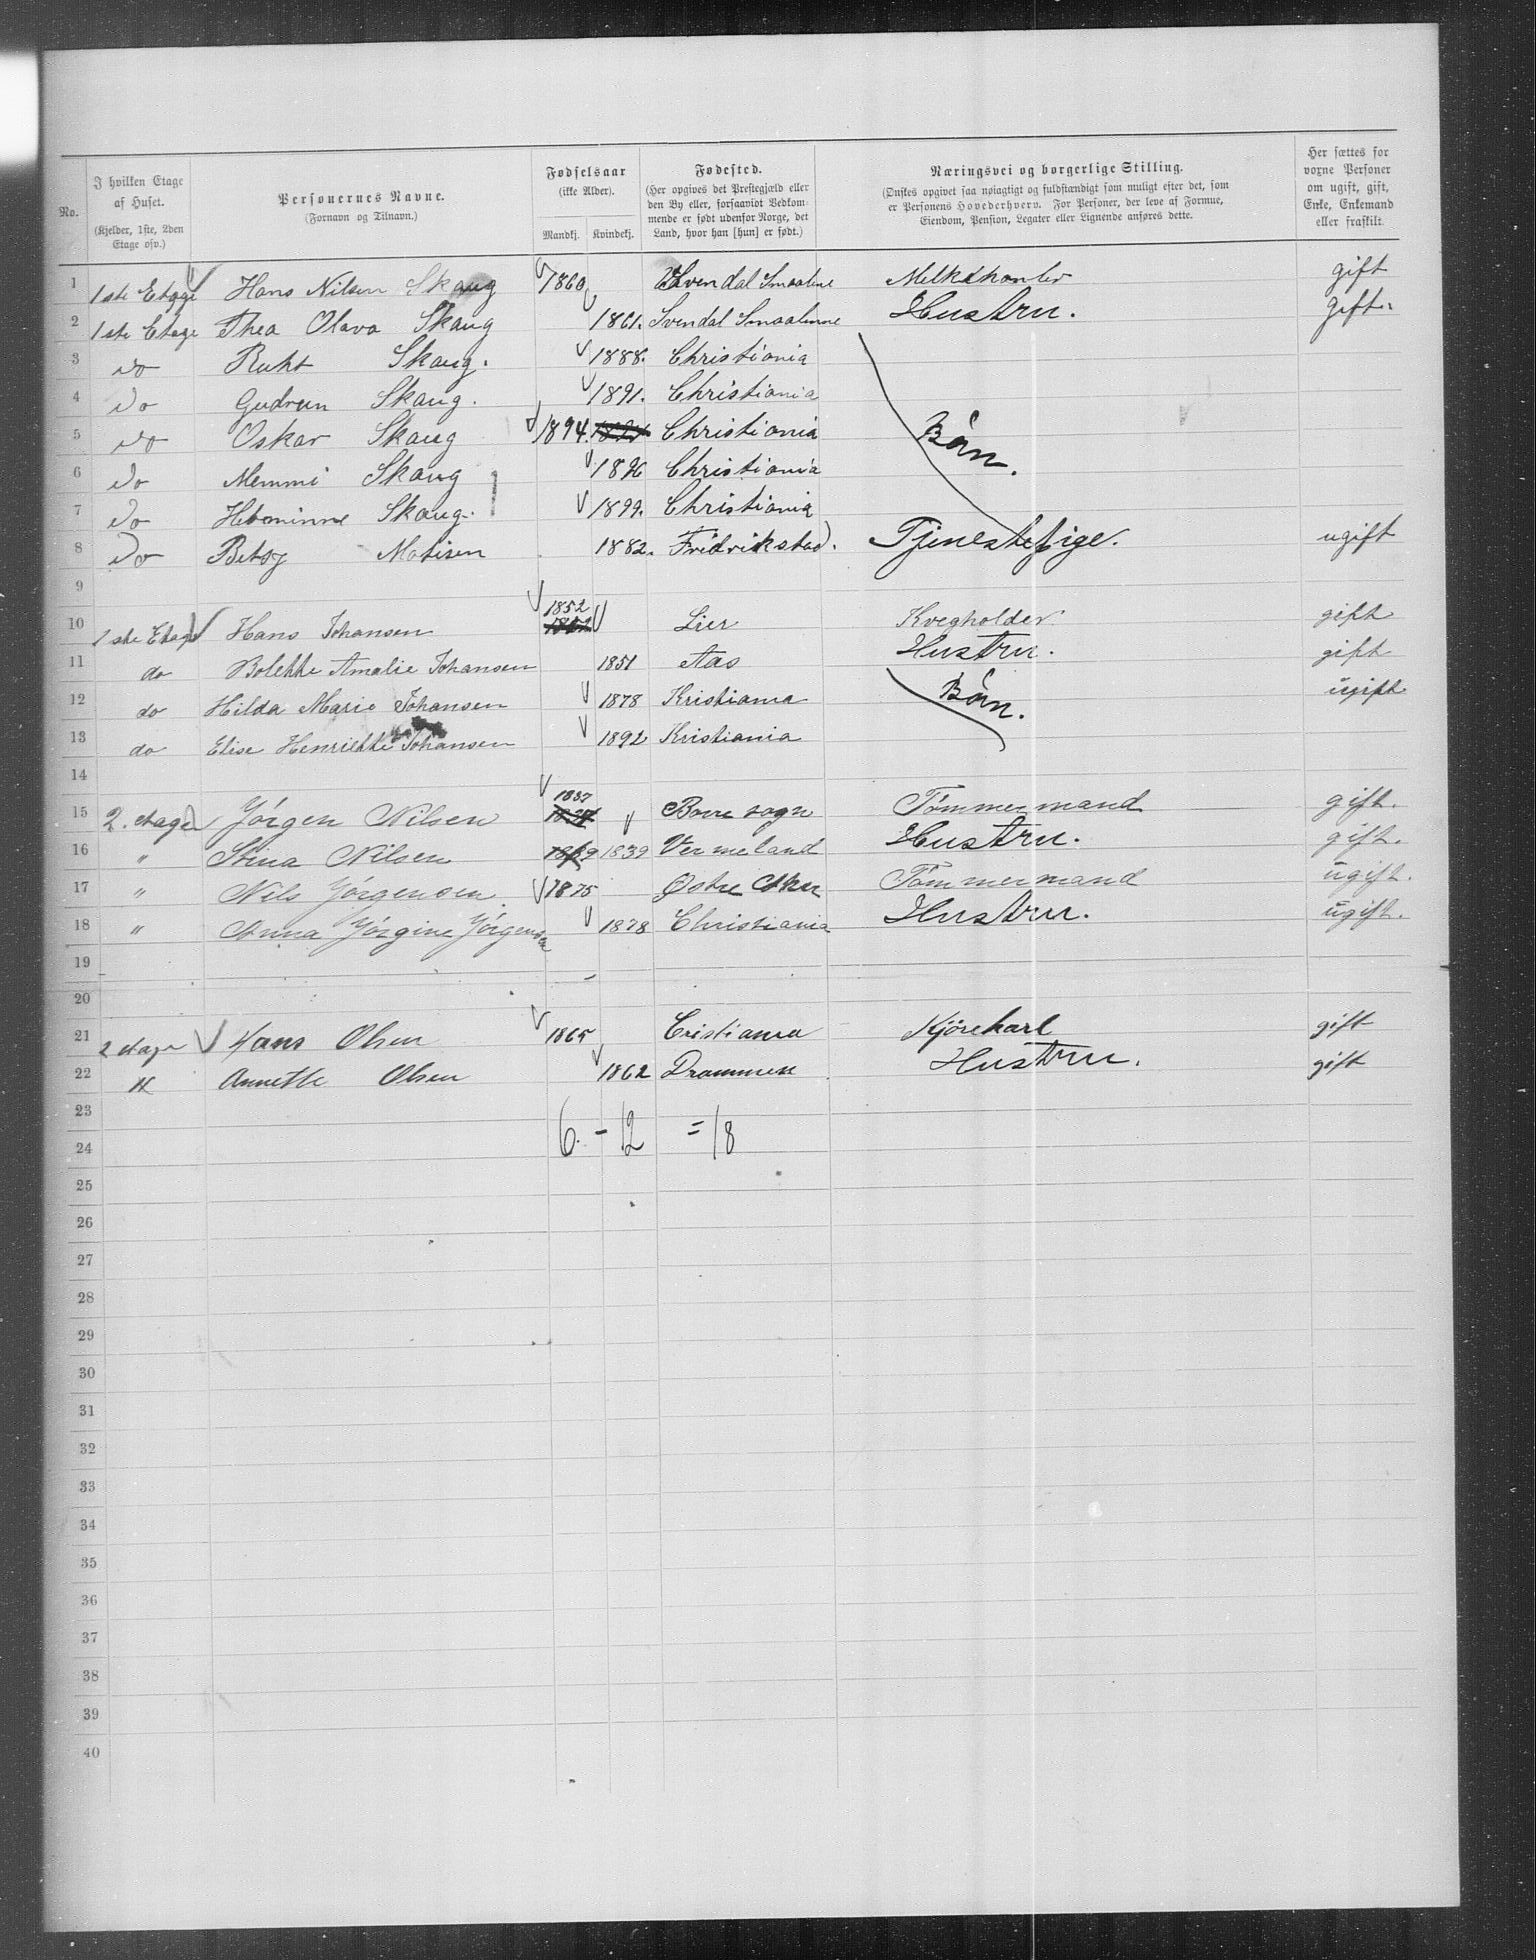 No.
I hvilken Etage af Huset.
(Kjelder, 1ste, 2den Etage osv.)
Personernes Navne.
(Fornavn og Tilnavn.)
Fødselsaar
(ikke Alder).
Mandkj. Kvindekj.
Fødested.
(Her opgives det Prestegjæld eller den By eller, forsaavidt Vedkommende er født udenfor Norge, det Land, hvor han [hun] er født.)
Næringsvei og borgerlige Stilling.
(Ønskes opgivet saa nøiagtigt og fuldstændigt som muligt efter det, som er Personens Hovederhverv. For Personer, der leve af Formue, Eiendom, Pension, Legater eller Lignende anføres dette.
Her sættes for voxne Personer om ugift, gift, Enke, Enkemand eller fraskilt.
1 1ste Etage Hans Nilsen Skaug 1860 Svendal Smaalene Melkehandler gift
2 1ste Etage Thea Olava Skaug 1861. Svendal Smaalinne Hustru. gift.
3 do Ruht Skaug. 1888. Christiania
4 do Gudrun Skaug. 1891. Christiania
5 do Oskar Skaug 1894. Christiania Børn.
6 do Memmi Skaug 1896 Christiania
7 do Skaug. 1899. Christiania
8 do Betsy Matisen 1882. Fridrikstad. Tjenestepige. ugift
9
10 1ste Etage Hans Johansen 1852 Lier Kvegholder gift
11 do Bolette Amalie Johansen 1851 Aas Hustru. gift
12 do Hilda Marie Johansen 1878 Kristiania Børn. ugift
13 do Elise Henriette Johansen 1892 Kristiania
14
15 2. etage Jørgen Nilsen 1837 Borre sogn Tømmermand gift.
16 " Stina Nilsen 1839 1839 Vermeland Hustru. gift.
17 " Nils Jørgensen. 1875 Østre Aker Tømmermand ugift.
18 " Anna Jørgine Jørgensen 1878 Christiania Hustru. ugift.
19
20
21 2 etage Hans Olsen 1865 Cristiania Kjørekarl gift
22 " Annette Olsen 1862 Drammen Hustru. gift
23
24 6. - 12 = 18
25
26
27
28
29
30
31
32
33
34
35
36
37
38
39
40